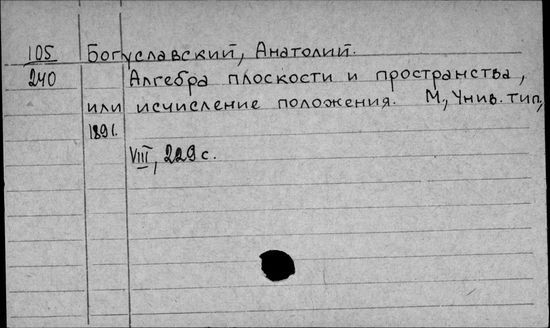 105 Богуславский, Анатолий.
240 Алгебра плоскости и пространства,
или исчисление положения. М., Унив. тип.,
1891.
VIII, 229 с.